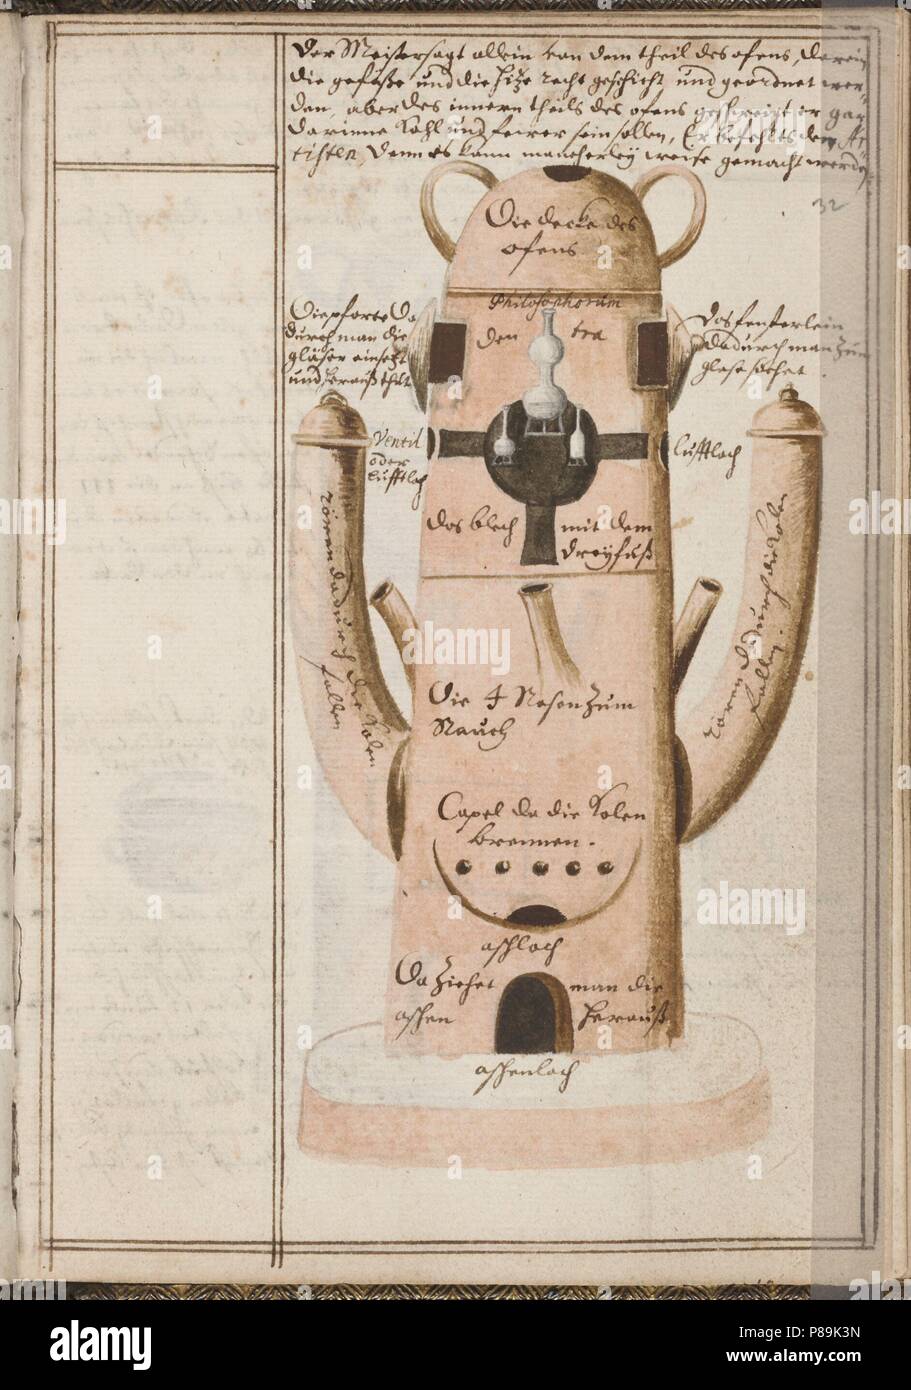 Der Meister sagt allein von dem theil des ofens, darein
die gefäße und die Hitze recht geschickt und geordnet wer-
den, aber des innern theils des ofens geschweigt er gar
darinne Kohl und feirer sein sollen, Er befehlts dem Ar-
tisten, denn es kann mancherley weise gemacht werden.
32
Die decke des
ofens
Philosophorum
Die pforte Da
durch man die
gläser einsetzt
und herauß thut
den tra
Das fensterlein
dadurch man zum
glase sehet
Ventil
oder
lufftloch
lufftloch
das blech mit dem
dreyfuß
rören dadurch die Kolen
fallen
rören dadurch die Kolen
fallen.
Die 4 Nasen zum
Rauch
Capel da die Kolen
brennen.
aschloch
Da ziehet man die
aschen herauß
aschenloch
alamy
alamy
Image ID: P89K3N
www.alamy.com